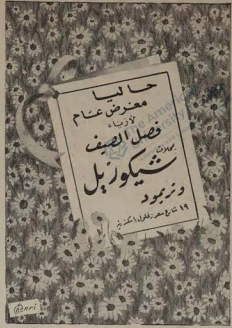 حاليا
معرض عام
لأزياء
فصل الصيف
بمحلات
شيكوريل
و نريمود
١٩ شارع سعد زغلول اسكندرية
henri